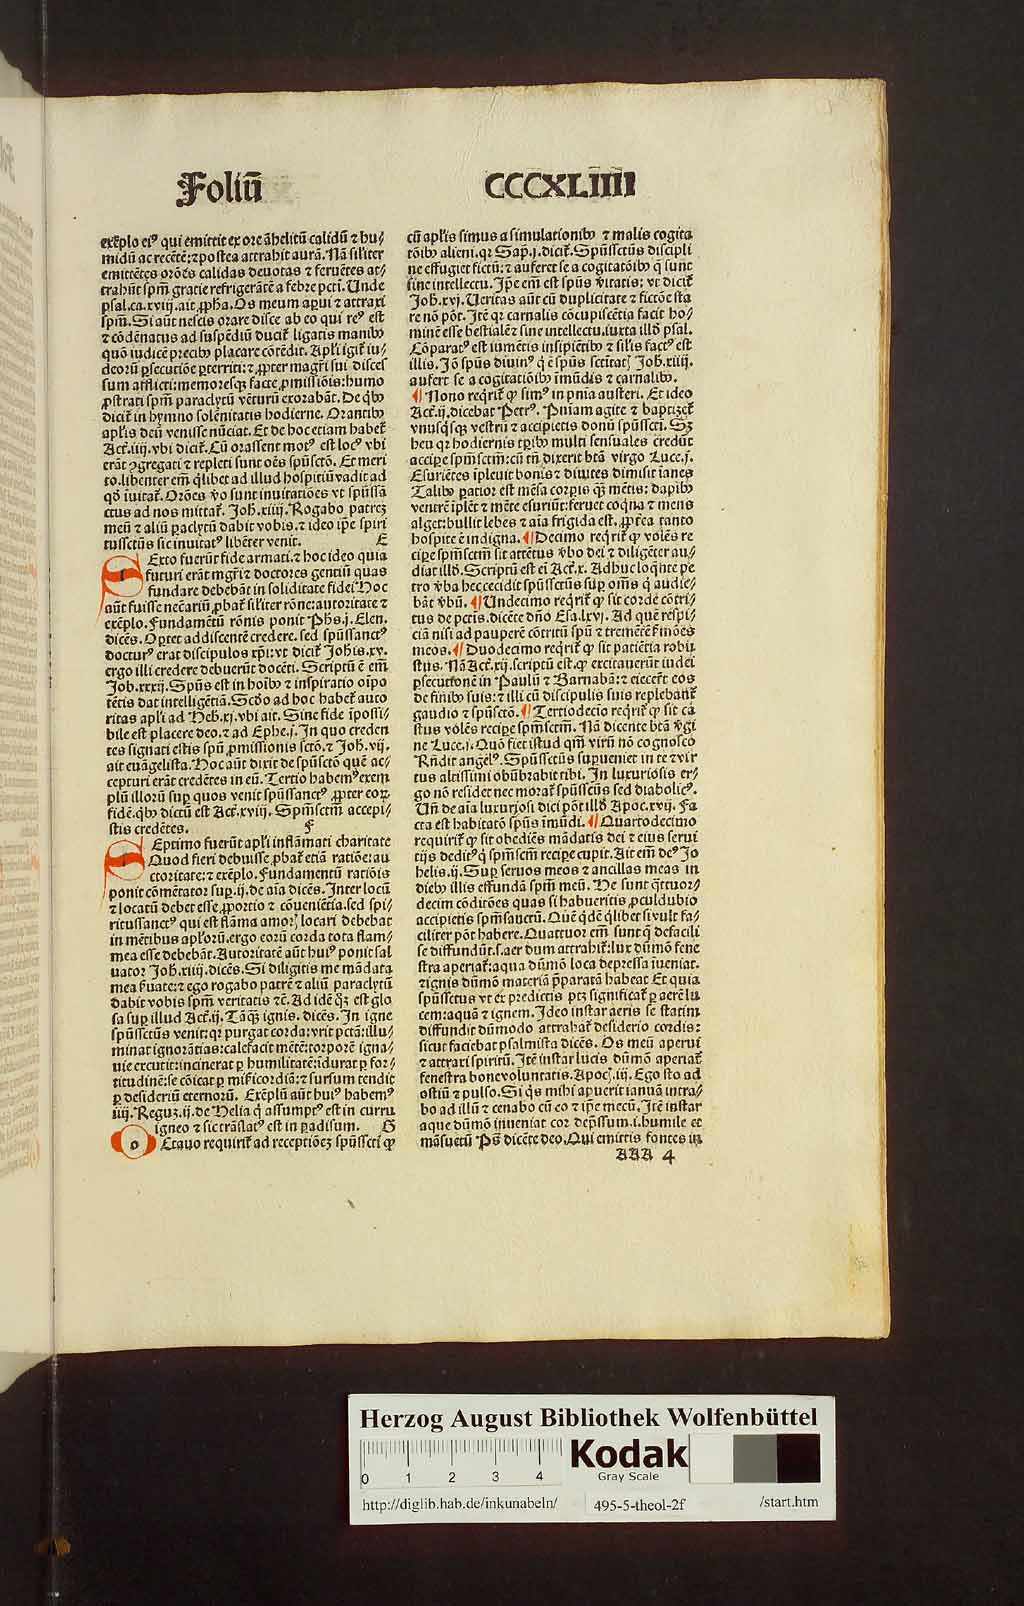 Foliū CCCXLIIII
exēplo ei⁹ qui emittit ex ore āhelitū calidū ⁊ hu/
midū ac recētē: ⁊ postea attrahit aurā. Nā sil'iter
emittētes orōes calidas deuotas ⁊ feruētes at/
trahūt spm̄ gratie refrigerātē a febre pctī. Unde
psal. ca. xviij. ait ꝓpha. Os meum aꝑui ⁊ attraxi
spm̄. Si aūt nescis orare disce ab eo qui re⁹ est
⁊ cōdēnatus ad suspēdiū ducit᷑ ligatis manibꝰ
quō iudicē precibꝰ placare cōtēdit. Apl'i igit᷑ iu/
deorū ꝑsecutiōe ꝑterriti: ⁊ ꝓpter magr̄i sui disces
sum afflicti: memoresqꝫ facte ꝓmissiōis: humo
ꝓstrati spm̄ paraclytū vēturū exorabāt. De qͥbꝰ
dicit᷑ in hymno solēnitatis hodierne. Orantibꝰ
apl'is deū venisse nūciat. Et de hoc etiam habet᷑
Act᷑. iiij. vbi dicit᷑. Cū orassent mot⁹ est loc⁹ vbi
erāt ꝯgregati ⁊ repleti sunt oēs spūsctō. Et meri
to. libenter em̄ qͥlibet ad illud hospitiū vadit ad
qd̄ īuitat᷑. Orōes ṽo sunt inuitatiōes vt spūssā
ctus ad nos mittat᷑. Joh̄. xiiij. Rogabo patreꝫ
meū ⁊ aliū ꝑaclytū dabit vobis. ⁊ ideo ip̄e spiri
tussctūs sic inuitat⁹ libēter venit. E
SExto fuerūt fide armati. ⁊ hoc ideo quia
futuri erāt mgr̄i ⁊ doctores gentiū quas
fundare debebāt in soliditate fidei Hoc
aūt fuisse nec̄ariū ꝓbat᷑ sil'iter rōne: autoritate ⁊
exēplo. Fundamētū rōnis ponit Ph̄s. j. Elen.
dicēs. Oꝑtet addiscentē credere. sed spūssanct⁹
doctur⁹ erat discipulos xp̄i: vt dicit᷑ Joh̄is. xv.
ergo illi credere debuerūt docēti. Scriptū ē em̄
Job. xxxij. Spūs est in hoībꝰ ⁊ inspiratio oīpo
tētis dat intelligētiā. Scd̄o ad hoc habet᷑ auto
ritas apl'i ad Heb. xj. vbi ait. Sine fide īpossi/
bile est placere deo. ⁊ ad Ephe. j. In quo creden
tes signati estis spū ꝓmissionis sctō. ⁊ Joh̄. vij.
ait euāgelista. Hoc aūt dixit de spūsctō quē ac/
cepturi erāt credētes in eū. Tertio habem⁹ exem
plū illorū suꝑ quos venit spūssanct⁹ ꝓpter eoꝝ
fidē. qͥbꝰ dictū est Act᷑. xviij. Spm̄sctm̄ accepi/
stis credētes. F
SEptimo fuerūt apl'i inflāmati charitate
Quod fieri debuisse ꝓbat᷑ etiā ratiōe: au
ctoritate: ⁊ exēplo. Fundamentū ratiōis
ponit cōmētator suꝑ. ij. de aīa dicēs. Inter locū
⁊ locatū debet esse ꝓportio ⁊ cōueniētia. sed spi/
ritussanct⁹ qui est flāma amorꝭ locari debebat
in mētibus apl'orū. ergo eorū corda tota flam/
mea esse debebāt. Autoritatē aūt hui⁹ ponit sal
uator Joh̄. xiiij. dicēs. Si diligitis me mādata
mea ẜuate: ⁊ ego rogabo patrē ⁊ aliū paraclytū
dabit vobis spm̄ veritatis ⁊c̄. Ad idē qͦꝫ est glo
sa suꝑ illud Act᷑. ij. Tāqꝫ ignis. dicēs. In igne
spūssctūs venit: qꝛ purgat corda: vrit pctā: illu/
minat ignorātias: calefacit mētē: torporē igna/
uie excutit: incinerat ꝑ humilitatē: īdurat ꝑ for/
titudinē: se cōicat ꝑ mīcordiā: ⁊ sursum tendit
ꝑ desideriū eternorū. Exēplū aūt hui⁹ habem⁹
iiij. Reguꝫ. ij. de Helia qͥ assumpt⁹ est in curru
igneo ⁊ sic trāslat⁹ est in ꝑadisum. G
oCtauo requirit᷑ ad receptiōeꝫ spūssctī ꝙ
cū apl'is simus a simulationibꝰ ⁊ malis cogita
tōibꝰ alieni. qꝛ Sap̄. j. dicit᷑. Spūssctūs discipli
ne effugiet fictū: ⁊ auferet se a cogitatōibꝰ q̄ sunt
sine intellectu. Ip̄e em̄ est spūs ṽitatis: vt dicit᷑
Joh̄. xvj. Ueritas aūt cū duplicitate ⁊ fictōe sta
re nō pōt. Itē qꝛ carnalis cōcupiscētia facit ho/
minē esse bestialē ⁊ sine intellectu. iuxta illd̄ psal.
Cōparat⁹ est iumētis insipiētibꝰ ⁊ sil'is fact⁹ est
illis. Iō spūs diuin⁹ qͥ ē spūs sctītatꝭ Joh̄. xiiij.
aufert se a cogitatiōibꝰ īmūdis ⁊ carnalibꝰ.
¶ Nono reqͥrit᷑ ꝙ sim⁹ in pn̄ia austeri. Et ideo
Act᷑. ij. dicebat Petr⁹. Pn̄iam agite ⁊ baptizet᷑
vnusqͥsqꝫ vestrū ⁊ accipietis donū spūssctī. Sꝫ
heu qꝛ hodiernis tꝑibꝰ multi sensuales credūt
accipe spm̄sctm̄: cū tn̄ dixerit btā virgo Luce. j.
Esuriētes īpleuit bonis ⁊ diuites dimisit īanes
Talibꝰ patior est mēsa corpis qꝫ mētis: dapibꝰ
ventrē īplēt ⁊ mēte esuriūt: feruet coqͥna ⁊ mens
alget: bullit lebes ⁊ aīa frigida est. ꝓpt̄ea tanto
hospite ē indigna. ¶ Decimo reqͥrit᷑ ꝙ volēs re
cipe spm̄sctm̄ sit attētus ṽbo dei ⁊ diligēter au/
diat illd̄. Scriptū est ei Act᷑. x. Adhuc loqūnte pe
tro ṽba hec cecidit spūssctūs suꝑ om̄s qͥ audie/
bāt ṽbū. ¶ Undecimo reqͥrit᷑ ꝙ sit corde cōtri/
tus de pctīs. dicēte dn̄o Esa. lxvj. Ad quē respi/
ciā nisi ad pauperē cōtritū spū ⁊ tremētē f̄mōes
meos. ¶ Duodecimo reqͥrit᷑ ꝙ sit patiētia robu
stus. Nā Act᷑. xij. scriptū est. ꝙ excitauerūt iudei
ꝑsecutionē in Paulū ⁊ Barnabā: ⁊ eiecer̄t eos
de finibꝰ suis: ⁊ illi cū discipulis suis replebant᷑
gaudio ⁊ spūsctō. ¶ Tertiodecīo reqͥrit᷑ ꝙ sit ca
stus volēs recipe spm̄sctm̄. Nā dicente btā ṽgi
ne Luce. j. Quō fiet istud qm̄ virū nō cognosco
Rn̄dit angel⁹. Spūssctūs suꝑueniet in te ⁊ vir
tus altissimi obūbrabit tibi. In luxuriosis er/
go nō residet nec morat᷑ spūssctūs sed diabolic⁹.
Un̄ de aīa luxuriosi dici pōt illd̄ Apoc. xvij. Fa
cta est habitatō spūs īmūdi. ¶ Quartodecimo
requirit᷑ ꝙ sit obediēs mādatis dei ⁊ eius serui
tijs dedit⁹ qͥ spm̄scm̄ recipe cupit. Ait em̄ de⁹ Jo
helis. ij. Suꝑ seruos meos ⁊ ancillas meas in
diebꝰ illis effundā spm̄ meū. He sunt qͣttuor/
decim cōditōes quas si habueritis ꝓculdubio
accipietis spm̄sanctū. Quē qͥdē qͥlibet si vult fa/
ciliter pōt habere. Quattuor em̄ sunt q̄ defacili
se diffundūt. s. aer dum attrahit᷑: lux dūmō fene
stra aperiat᷑: aqua dūmō loca depressa īueniat.
⁊ ignis dūmō materiā p̄paratā habeat Et quia
spūssctus vt ex predictis ptꝫ significat᷑ ꝑ aerē lu
cem: aquā ⁊ ignem. Ideo instar aeris se statim
diffundit dūmodo attrahat᷑ desiderio cordis:
sicut faciebat psalmista dicēs. Os meū aperui
⁊ attraxi spiritū. Itē instar lucis dūmō aperiat᷑
fenestra bonevoluntatis. Apocꝭ. iij. Ego sto ad
ostiū ⁊ pulso. Si qͥs mihi apuerit ianuā intra/
bo ad illū ⁊ cenabo cū eo ⁊ ip̄e mecū. Itē instar
aque dūmō inueniat cor dep̄ssum. i. humile et
māsuetū Ps̄ dicēte deo. Qui emittis fontes in
AAA 4
Herzog August Bibliothek Wolfenbüttel
Kodak
Gray Scale
0 1 2 3 4
http://diglib.hab.de/inkunabeln/ 495-5-theol-2f /start.htm